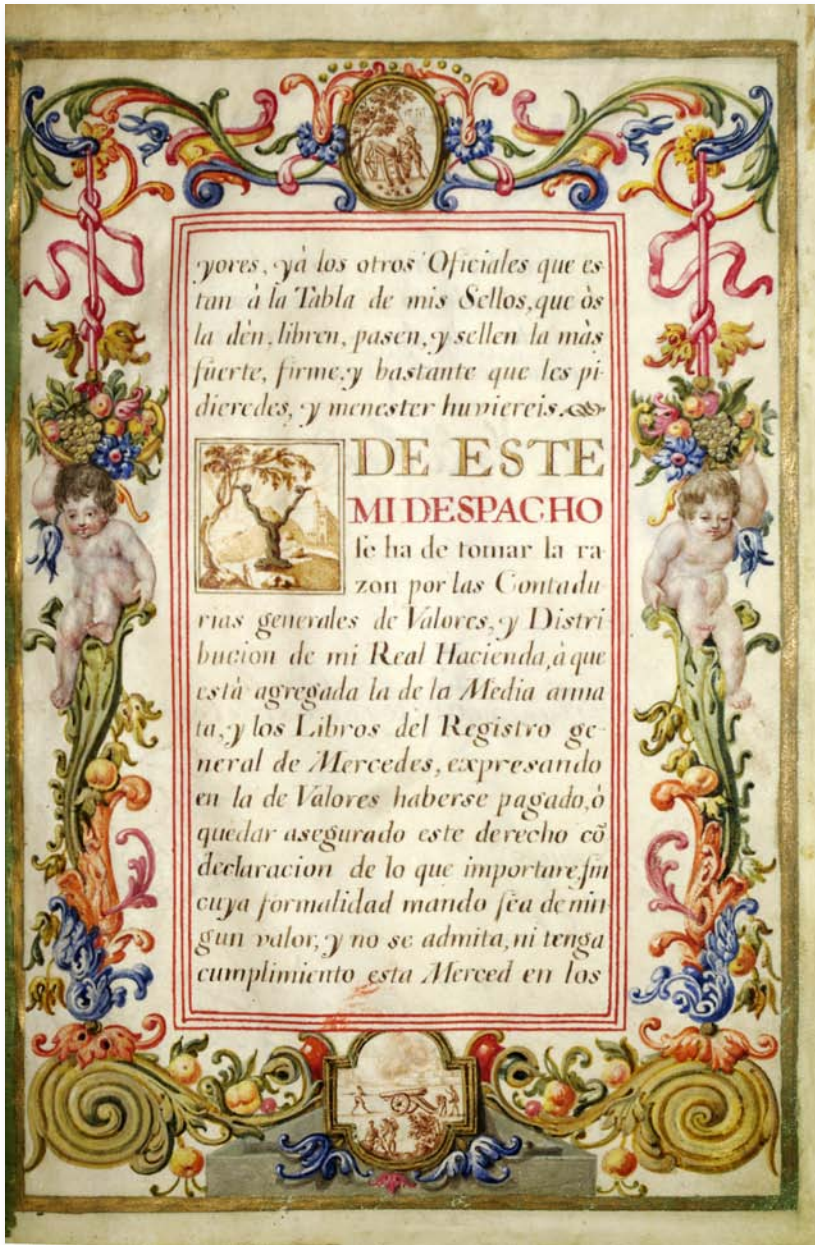 yores, yà los otros Oficiales que es-
tan à la Tabla de mis Sellos, que òs
la dèn, libren, pasen, y sellen la màs
fuerte, firme, y bastante que les pi-
dieredes, y menester huviereis.
Y DE ESTE
MI DESPACHO
se ha de tomar la ra-
zon por las Contadu-
rias generales de Valores, y Distri-
bucion de mi Real Hacienda, à que
està agregada la de la Media anna-
ta, y los Libros del Registro ge-
neral de Mercedes, expresando
en la de Valores haberse pagado, ò
quedar asegurado este derecho cõ
declaracion de lo que importare, sin
cuya formalidad mando sea de nin-
gun valor, y no se admita, ni tenga
cumplimiento esta Merced en los